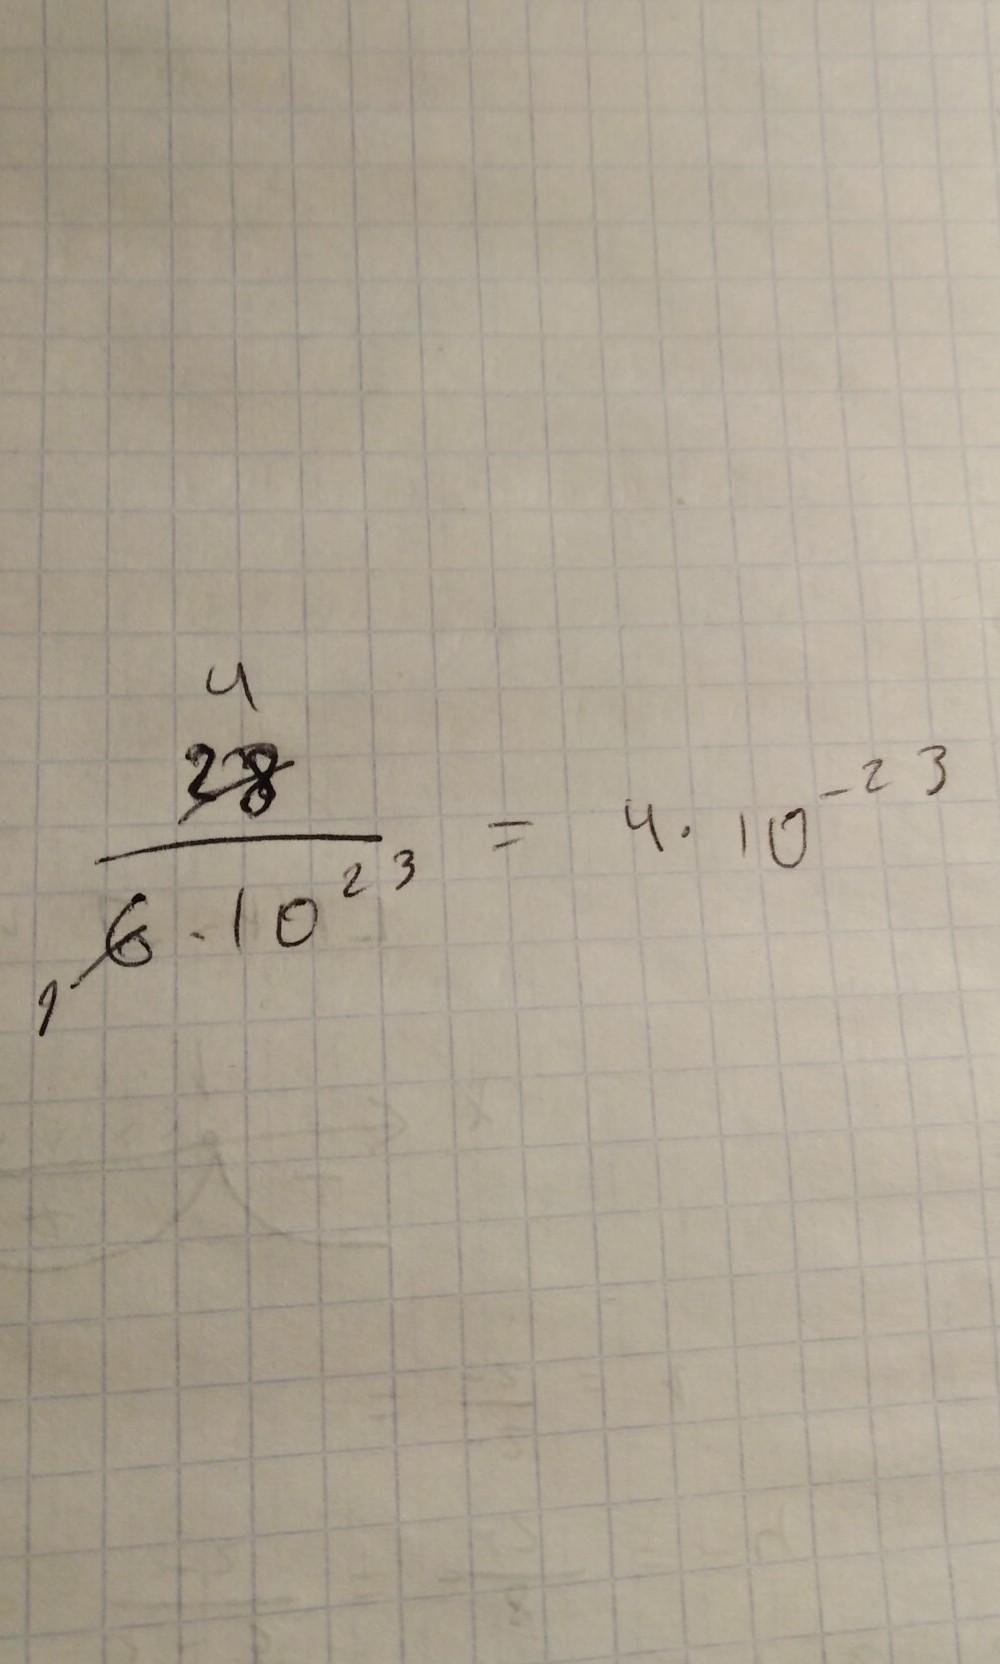 4
28
6 · 10²³ = 4 · 10⁻²³
1